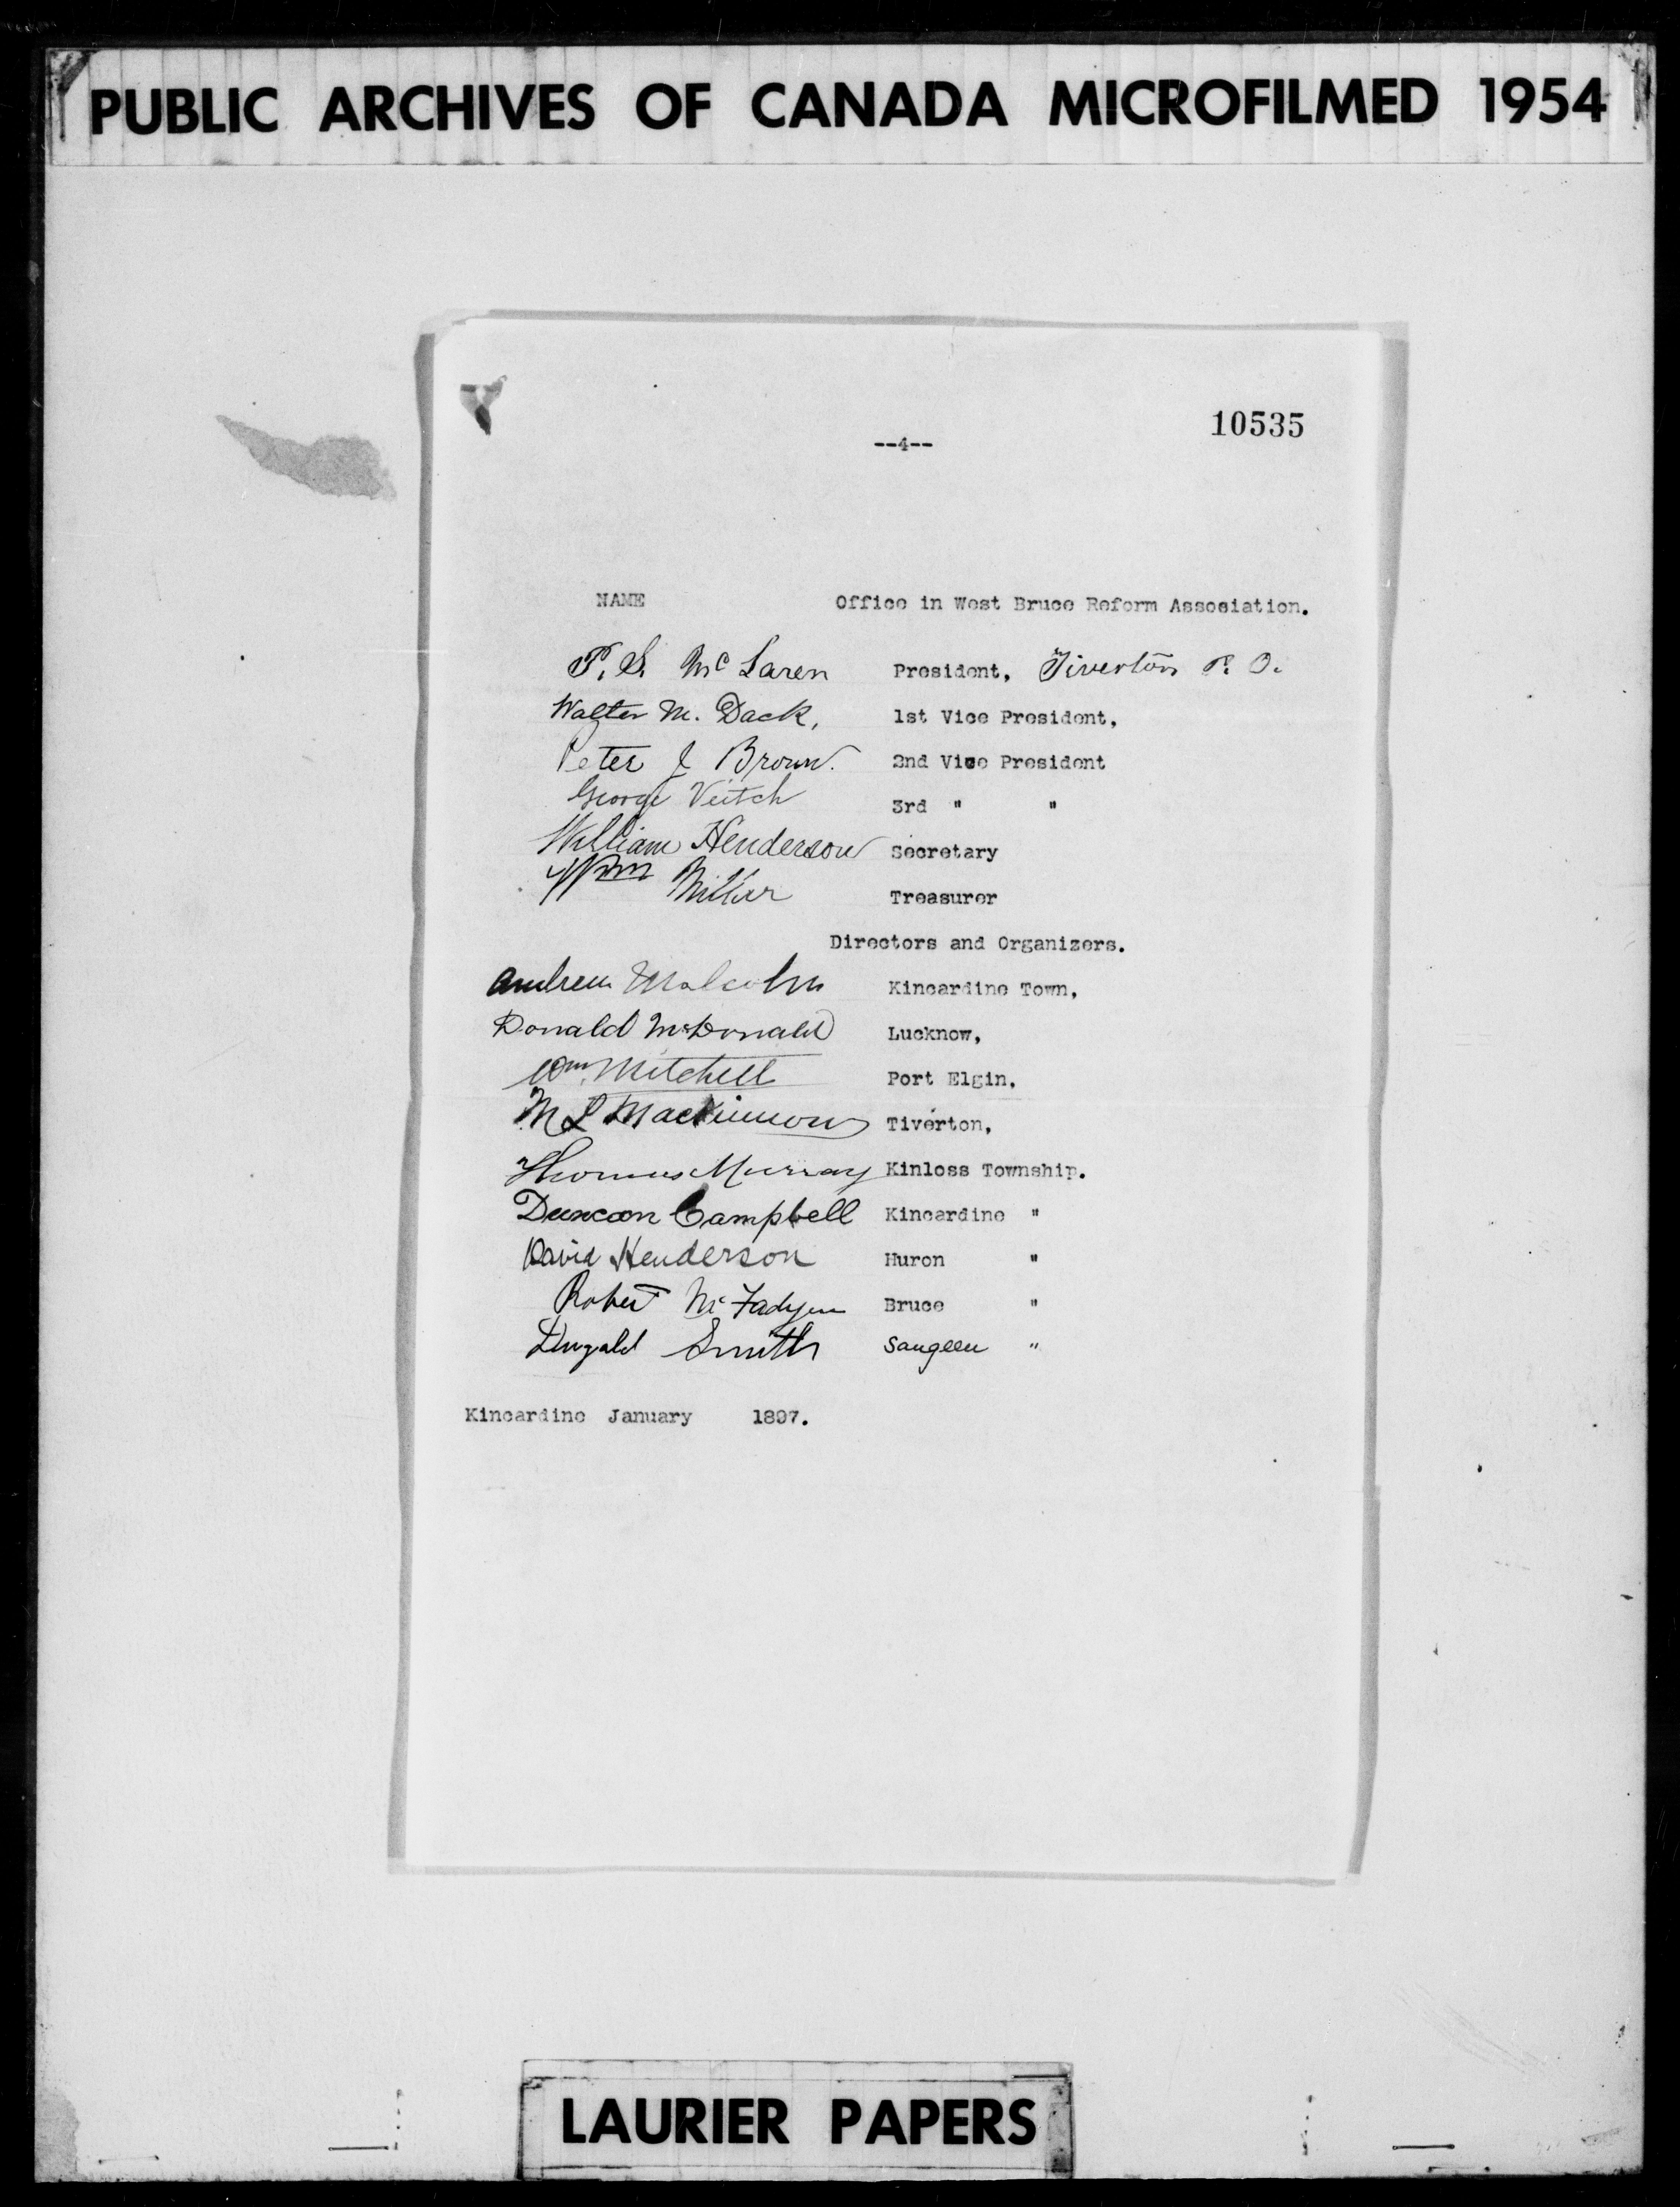 PUBLIC ARCHIVES OF CANADA MICROFILMED 1954
10535
--4--
NAME Office in West Bruce Reform Association.
P. S. McLaren President, Tiverton P. O.
Walter M. Dack, 1st Vice President,
Peter J Brown. 2nd Vice President
George Veitch 3rd " "
William Henderson Secretary
Wm Millar Treasurer
Directors and Organizers.
Andrew Malcolm Kincardine Town,
Donald McDonald Lucknow,
Wm. Mitchell Port Elgin.
M L MacKinnon Tiverton,
Thomas Murray Kinloss Township.
Duncan Campbell Kincardine "
David Henderson Huron "
Robert McFadyen Bruce "
Dugald Smith Saugeen "
Kincardine January 1897.
LAURIER PAPERS